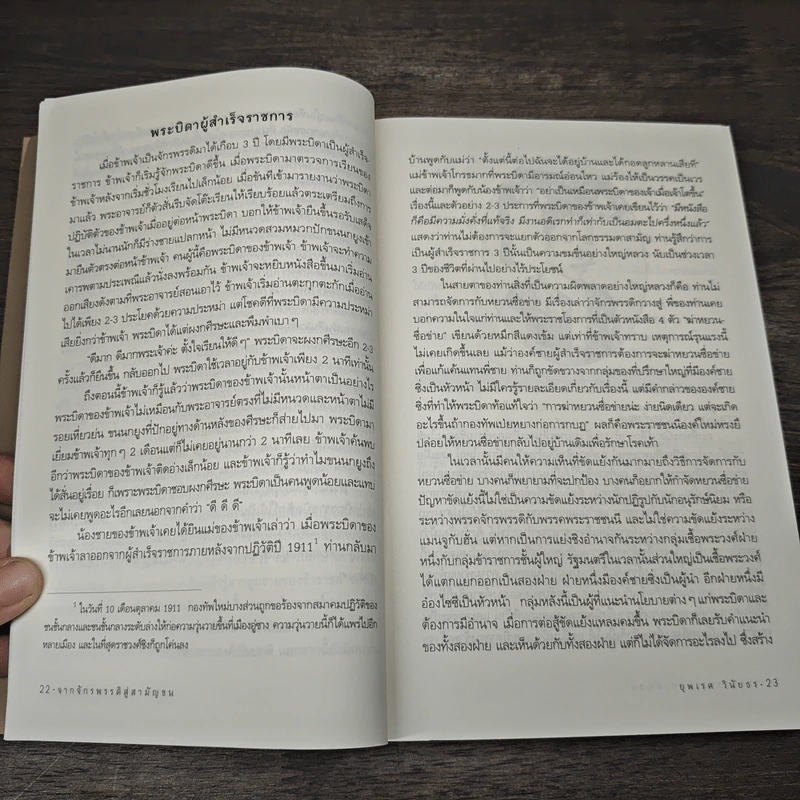 พระบิดาผู้สำเร็จราชการ
เมื่อข้าพเจ้าเป็นจักรพรรดิมาได้เกือบ 3 ปี โดยมีพระบิดาเป็นผู้สำเร็จ-
ราชการ ข้าพเจ้าก็เริ่มรู้จักพระบิดาดีขึ้น เมื่อพระบิดามาตรวจการเรียนของ
ข้าพเจ้าหลังจากเริ่มชั่วโมงเรียนไปเล็กน้อย เมื่อขันทีเข้ามารายงานว่าพระบิดา
มาแล้ว พระอาจารย์ก็ตัวสั่นรีบจัดโต๊ะเรียนให้เรียบร้อยแล้วตระเตรียมถึงการ
ปฏิบัติตัวของข้าพเจ้าเมื่ออยู่ต่อหน้าพระบิดา บอกให้ข้าพเจ้ายืนขึ้นรอรับเสด็จ
ในเวลาไม่นานนักก็มีร่างชายแปลกหน้า ไม่มีหนวดสวมหมวกปักขนนกยูงเข้า
มายืนตัวตรงต่อหน้าข้าพเจ้า คนผู้นี้คือพระบิดาของข้าพเจ้า ข้าพเจ้าจะทำความ
เคารพตามประเพณีแล้วนั่งลงพร้อมกัน ข้าพเจ้าจะหยิบหนังสือขึ้นมาเริ่มอ่าน
ออกเสียงดังตามที่พระอาจารย์สอนเอาไว้ ข้าพเจ้าเริ่มอ่านตะกุกตะกักเมื่ออ่าน
ไปได้เพียง 2-3 ประโยคด้วยความประหม่า แต่โชคดีที่พระบิดามีความประหม่า
เสียยิ่งกว่าข้าพเจ้า พระบิดาได้แต่ผงกศีรษะและพึมพำเบาๆ
"ดีมาก ดีมากพระเจ้าค่ะ ตั้งใจเรียนให้ดีๆ" พระบิดาจะผงกศีรษะอีก 2-3
ครั้งแล้วก็ยืนขึ้น กลับออกไป พระบิดาใช้เวลาอยู่กับข้าพเจ้าเพียง 2 นาทีเท่านั้น
ถึงตอนนี้ข้าพเจ้าก็รู้แล้วว่าพระบิดาของข้าพเจ้านั้นหน้าตาเป็นอย่างไร
พระบิดาของข้าพเจ้าไม่เหมือนกับพระอาจารย์ตรงที่ไม่มีหนวดและหน้าตาไม่มี
รอยเหี่ยวย่น ขนนกยูงที่ปักอยู่ทางด้านหลังของศีรษะก็ส่ายไปมา พระบิดามา
เยี่ยมข้าพเจ้าทุกๆ 2 เดือนแต่ก็ไม่เคยอยู่นานกว่า 2 นาทีเลย ข้าพเจ้าค้นพบ
อีกว่าพระบิดาของข้าพเจ้าติดอ่างเล็กน้อย และข้าพเจ้าก็รู้ว่าทำไมขนนกยูงถึง
ได้สั่นอยู่เรื่อย ก็เพราะพระบิดาชอบผงกศีรษะ พระบิดาเป็นคนพูดน้อยและแทบ
จะไม่เคยพูดอะไรอีกเลยนอกจากคำว่า "ดี ดี ดี"
น้องชายของข้าพเจ้าเคยได้ยินแม่ของข้าพเจ้าเล่าว่า เมื่อพระบิดาของ
ข้าพเจ้าลาออกจากผู้สำเร็จราชการภายหลังจากปฏิวัติปี 1911¹ ท่านกลับมา
¹ ในวันที่ 10 เดือนตุลาคม 1911 กองทัพใหม่บางส่วนถูกขอร้องจากสมาคมปฏิวัติของ
ชนชั้นกลางและชนชั้นกลางระดับล่างให้ก่อความวุ่นวายขึ้นที่เมืองอู่ชาง ความวุ่นวายนี้ก็ได้แพร่ไปอีก
หลายเมือง และในที่สุดราชวงศ์ชิงก็ถูกโค่นลง
22 • จากจักรพรรดิสู่สามัญชน
บ้านพูดกับแม่ว่า "ตั้งแต่นี้ต่อไปฉันจะได้อยู่บ้านและได้กอดลูกหลานเสียที"
แม่ข้าพเจ้าโกรธมากที่พระบิดามีอารมณ์อ่อนไหว แม่ร้องไห้เป็นวรรคเป็นเวร
และต่อมาก็พูดกับน้องข้าพเจ้าว่า "อย่าเป็นเหมือนพระบิดาของเจ้าเมื่อเจ้าโตขึ้น"
เรื่องนี้และตัวอย่าง 2-3 ประการที่พระบิดาของข้าพเจ้าเคยเขียนไว้ว่า "มีหนังสือ
ก็คือมีความมั่งคั่งที่แท้จริง มีงานอดิเรกทำก็เท่ากับเป็นอมตะไปครึ่งหนึ่งแล้ว"
แสดงว่าท่านไม่ต้องการจะแยกตัวออกจากโลกธรรมดาสามัญ ท่านรู้สึกว่าการ
เป็นผู้สำเร็จราชการ 3 ปีนั้นเป็นความขมขื่นอย่างใหญ่หลวง นับเป็นช่วงเวลา
3 ปีของชีวิตที่ผ่านไปอย่างไร้ประโยชน์
ในสายตาของท่านสิ่งที่เป็นความผิดพลาดอย่างใหญ่หลวงก็คือ ท่านไม่
สามารถจัดการกับหยวนซื่อข่าย มีเรื่องเล่าว่าจักรพรรดิกวางสู พี่ของท่านเคย
บอกความในใจแก่ท่านและให้พระราชโองการที่เป็นตัวหนังสือ 4 ตัว "ฆ่าหยวน-
ซื่อข่าย" เขียนด้วยหมึกสีแดงเข้ม แต่เท่าที่ข้าพเจ้าทราบ เหตุการณ์รุนแรงนี้
ไม่เคยเกิดขึ้นเลย แม้ว่าองค์ชายผู้สำเร็จราชการต้องการจะฆ่าหยวนซื่อข่าย
เพื่อแก้แค้นแทนพี่ชาย ท่านก็ถูกขัดขวางจากกลุ่มของที่ปรึกษาใหญ่ที่มีองค์ชาย
ชิงเป็นหัวหน้า ไม่มีใครรู้รายละเอียดเกี่ยวกับเรื่องนี้ แต่มีคำกล่าวขององค์ชาย
ชิงที่ทำให้พระบิดาท้อแท้ใจว่า "การฆ่าหยวนซื่อข่ายน่ะ ง่ายนิดเดียว แต่จะเกิด
อะไรขึ้นถ้ากองทัพเป่ยหยางก่อการกบฏ" ผลก็คือพระราชชนนีองค์ใหม่ทรงยี
ปล่อยให้หยวนซื่อข่ายกลับไปอยู่บ้านเดิมเพื่อรักษาโรคเท้า
ในเวลานั้นมีคนให้ความเห็นที่ขัดแย้งกันมากมายถึงวิธีการจัดการกับ
หยวนซื่อข่าย บางคนก็พยายามที่จะปกป้อง บางคนก็อยากให้กำจัดหยวนซื่อข่าย
ปัญหาขัดแย้งนี้ไม่ใช่เป็นความขัดแย้งระหว่างนักปฏิรูปกับนักอนุรักษ์นิยม หรือ
ระหว่างพรรคจักรพรรดิกับพรรคพระราชชนนี และไม่ใช่ความขัดแย้งระหว่าง
แมนจูกับฮั่น แต่หากเป็นการแย่งชิงอำนาจกันระหว่างกลุ่มเชื้อพระวงศ์ฝ่าย
หนึ่งกับกลุ่มข้าราชการชั้นผู้ใหญ่ รัฐมนตรีในเวลานั้นส่วนใหญ่เป็นเชื้อพระวงศ์
ได้แตกแยกออกเป็นสองฝ่าย ฝ่ายหนึ่งมีองค์ชายชิงเป็นผู้นำ อีกฝ่ายหนึ่งมี
อ๋องไซซีเป็นหัวหน้า กลุ่มหลังนี้เป็นผู้ที่แนะนำนโยบายต่างๆ แก่พระบิดาและ
ต้องการมีอำนาจ เมื่อการต่อสู้ขัดแย้งแหลมคมขึ้น พระบิดาก็เลยรับคำแนะนำ
ของทั้งสองฝ่าย และเห็นด้วยกับทั้งสองฝ่าย แต่ก็ไม่ได้จัดการอะไรลงไป ซึ่งสร้าง
ยุพเรศ วินัยธร • 23